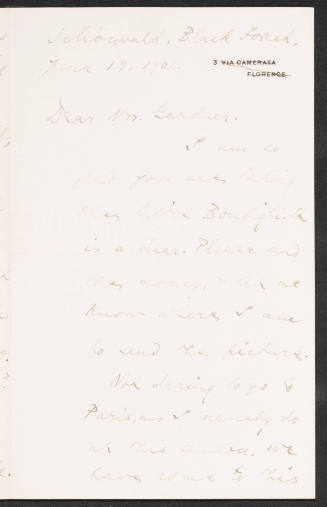 Schönwald, Black Forest,
June 19, 1901.
3 VIA CAMERATA
FLORENCE
Dear Mrs. Gardner.
I am so
glad you are taking
the Bonfigli. It
is a dear. Please send
the money, & let me
know where I am
to send the picture.
Not daring to go to
Paris, as I usually do
at this season, we
have come to this